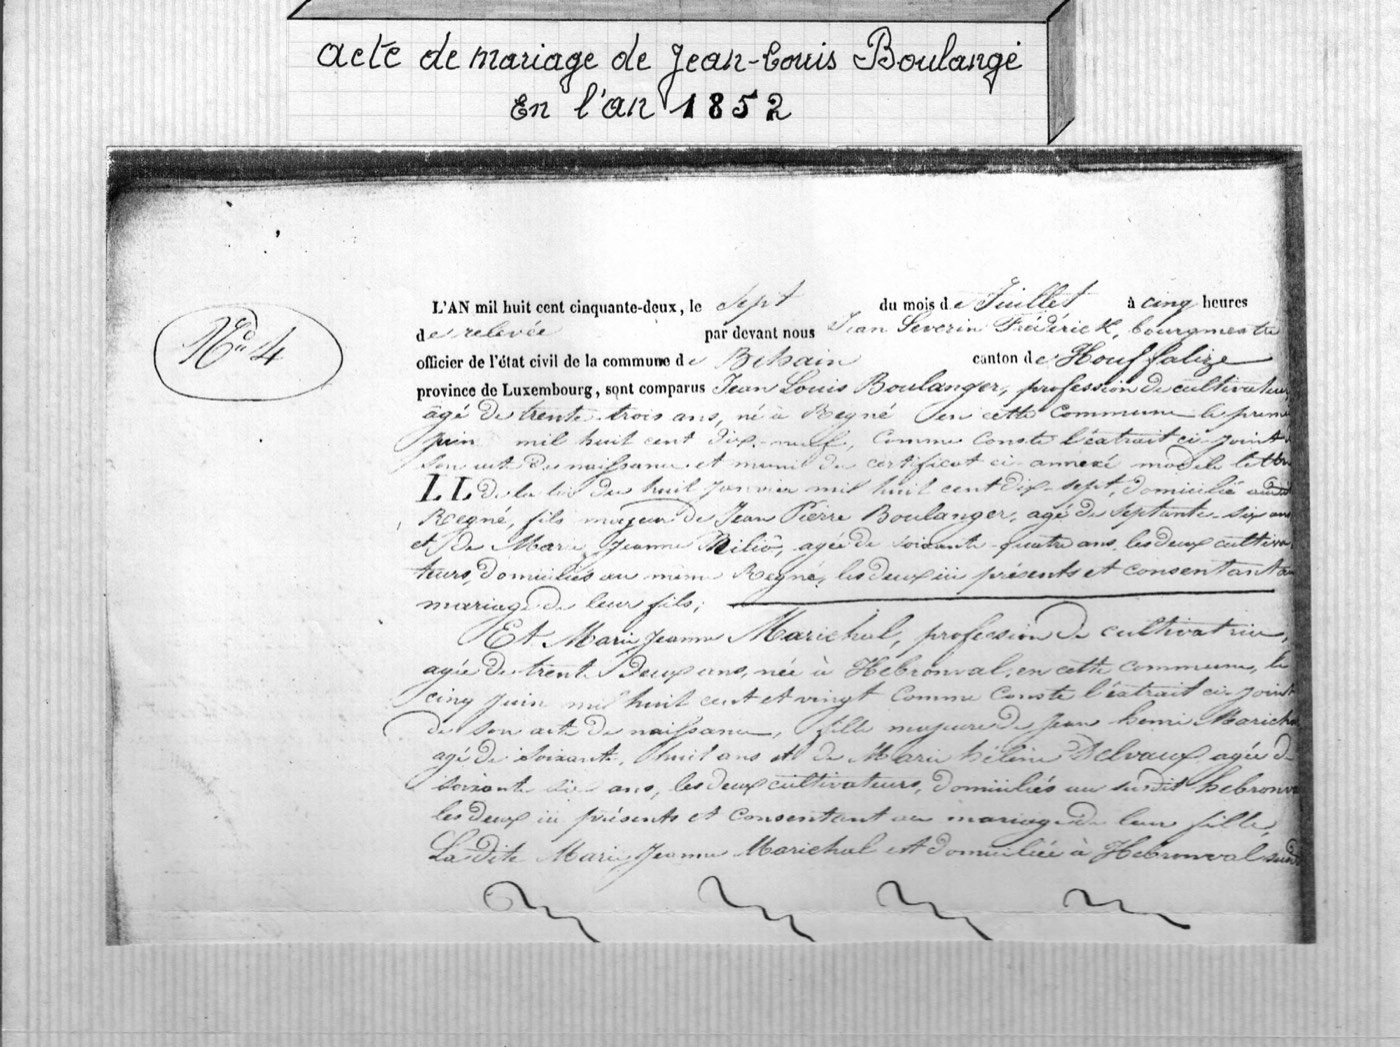 Acte de mariage de Jean-Louis Boulangé
En l'an 1852
N° 4
L'AN mil huit cent cinquante-deux, le sept du mois de Juillet à cinq heures
de relevée par devant nous Jean Severin Frédérick, bourgmestre
officier de l'état civil de la commune de Bihain canton de Houffalize
province de Luxembourg, sont comparus Jean Louis Boulanger, profession de cultivateur,
âgé de trente-trois ans, né à Regné en cette commune le premier
juin mil huit cent dix-neuf, comme conste l'extrait ci-joint de
son acte de naissance et muni du certificat ci-annexé modèle lettre
LL de la loi du huit janvier mil huit cent dix-sept, domicilié audit
Regné, fils majeur de Jean Pierre Boulanger, agé de septante-six ans
et de Marie Jeanne agée de soixante-quatre ans, les deux cultiva-
teurs, domiciliés au même Regné, les deux ici présents et consentant au
mariage de leur fils;
Et Marie Jeanne Marichal, profession de cultivatrice,
agée de trente deux ans, née à Hebronval, en cette commune, le
cinq juin mil huit cent et vingt comme conste l'extrait ci-joint
de son acte de naissance, fille majeure de Jean henri Marichal
agé de soixante-huit ans et de Marie hélène Delvaux, agée de
soixante dix ans, les deux cultivateurs, domiciliés au susdit hebronval
les deux ici présents et consentant au mariage de leur fille,
La dite Marie Jeanne Marichal est domiciliée à Hebronval susdit